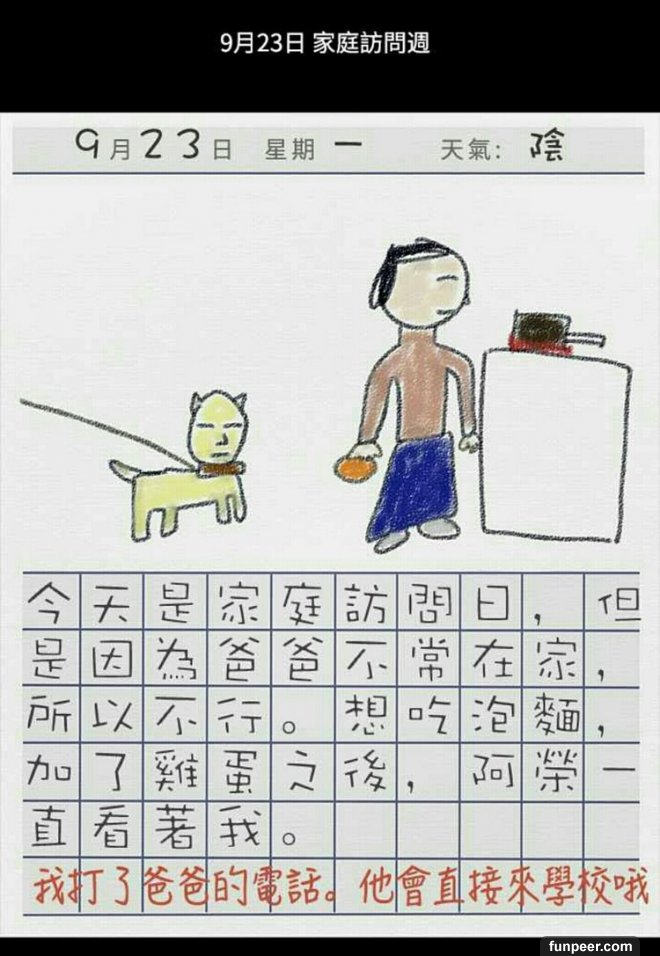 9月23日 家庭訪問週
9月23日 星期一 天氣: 陰
今天是家庭訪問日，但
是因為爸爸不常在家，
所以不行。想吃泡麵，
加了雞蛋之後，阿榮一
直看著我。
我打了爸爸的電話。他會直接來學校哦
funpeer.com